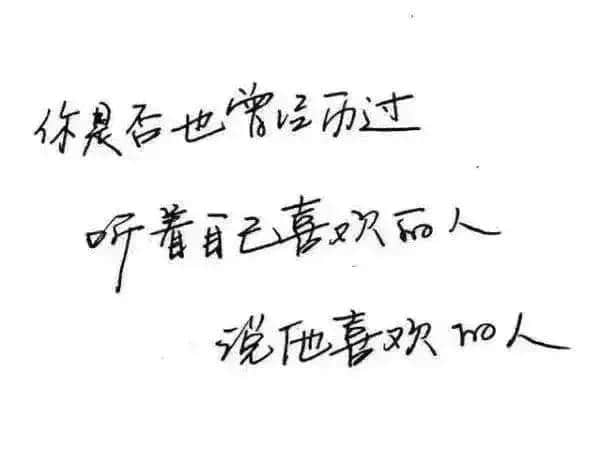 你是否也曾经历过
听着自己喜欢的人
说他喜欢的人